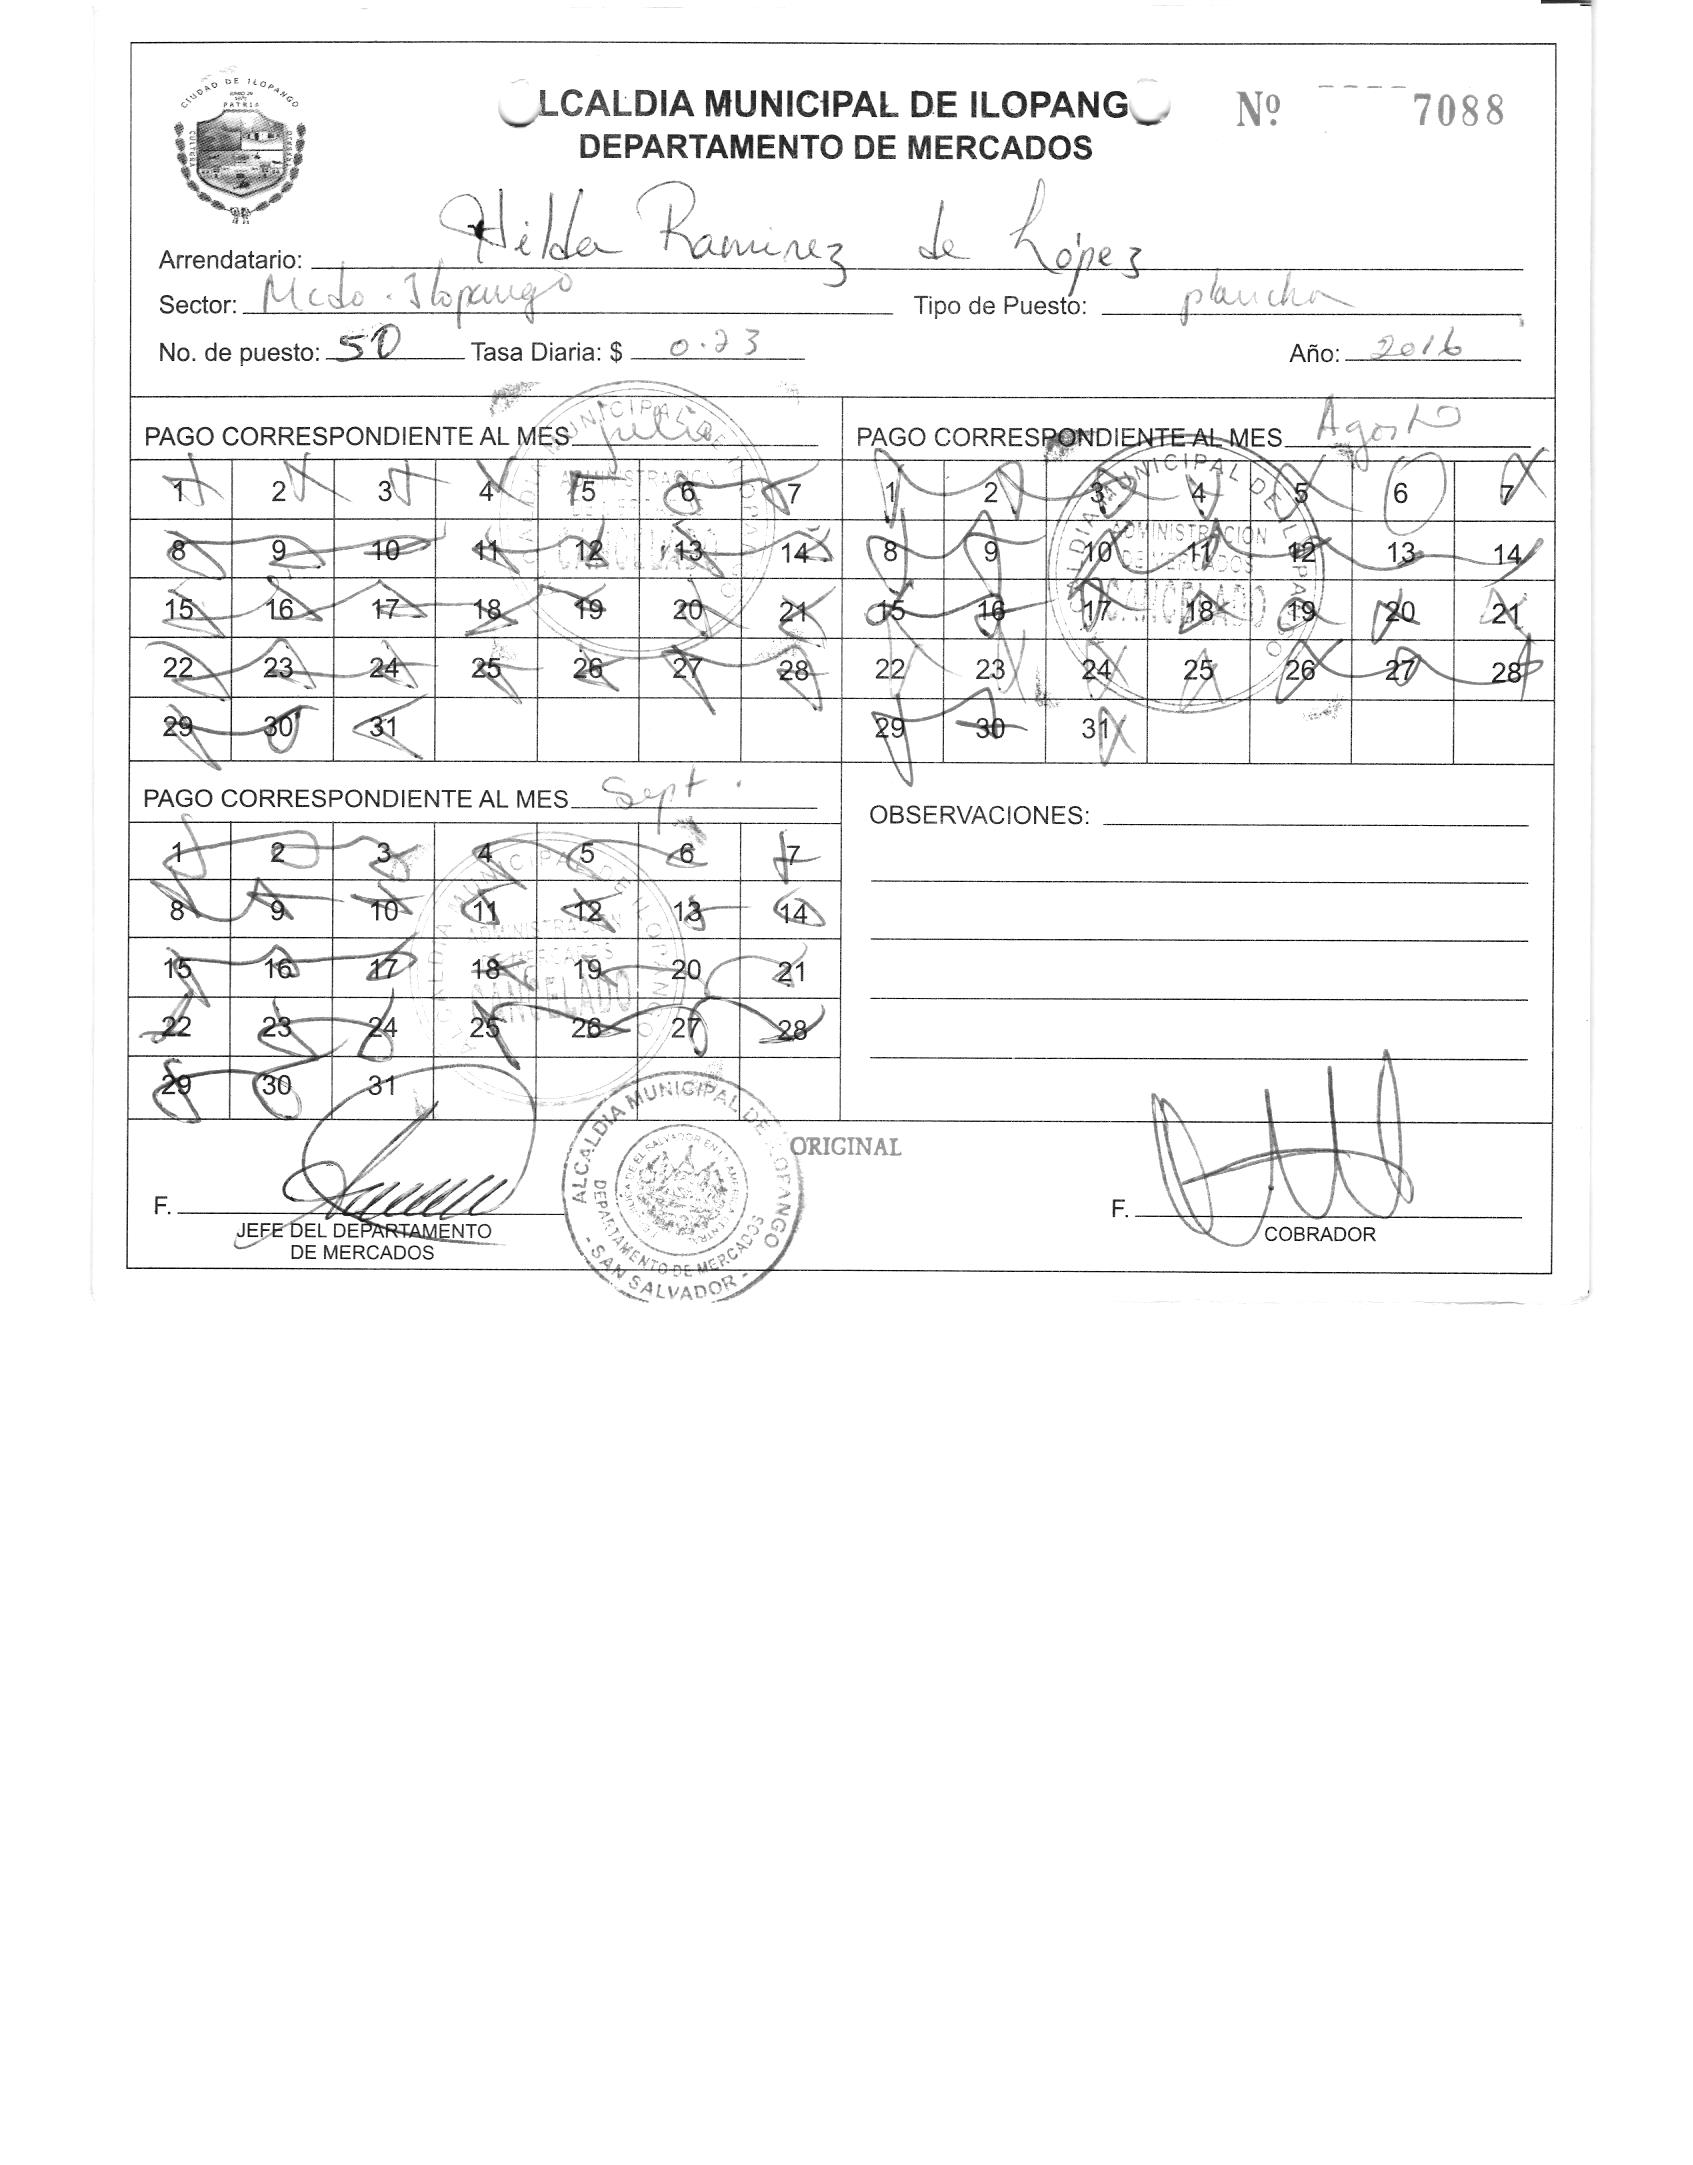 CIUDAD DE ILOPANGO
PATRIA
CULTURA
LCALDIA MUNICIPAL DE ILOPANG
Nº 7088
DEPARTAMENTO DE MERCADOS
Arrendatario: Hilda Ramirez de López
Sector: Mcdo. Ilopango Tipo de Puesto: plancha
No. de puesto: 50 Tasa Diaria: $ 0.23 Año: 2016
PAGO CORRESPONDIENTE AL MES julio
1 2 3 4 5 6 7
8 9 10 11 12 13 14
15 16 17 18 19 20 21
22 23 24 25 26 27 28
29 30 31
PAGO CORRESPONDIENTE AL MES Agosto
1 2 3 4 5 6 7
8 9 10 11 12 13 14
15 16 17 18 19 20 21
22 23 24 25 26 27 28
29 30 31
ALCALDIA MUNICIPAL DE ILOPANGO
ADMINISTRACION
DE MERCADOS
CANCELADO
PAGO CORRESPONDIENTE AL MES Sept.
1 2 3 4 5 6 7
8 9 10 11 12 13 14
15 16 17 18 19 20 21
22 23 24 25 26 27 28
29 30 31
ALCALDIA MUNICIPAL DE ILOPANGO
ADMINISTRACION
DE MERCADOS
CANCELADO
OBSERVACIONES:
ORIGINAL
F.
JEFE DEL DEPARTAMENTO
DE MERCADOS
ALCALDIA MUNICIPAL DE ILOPANGO
DEPARTAMENTO DE MERCADOS
- SAN SALVADOR -
F.
COBRADOR